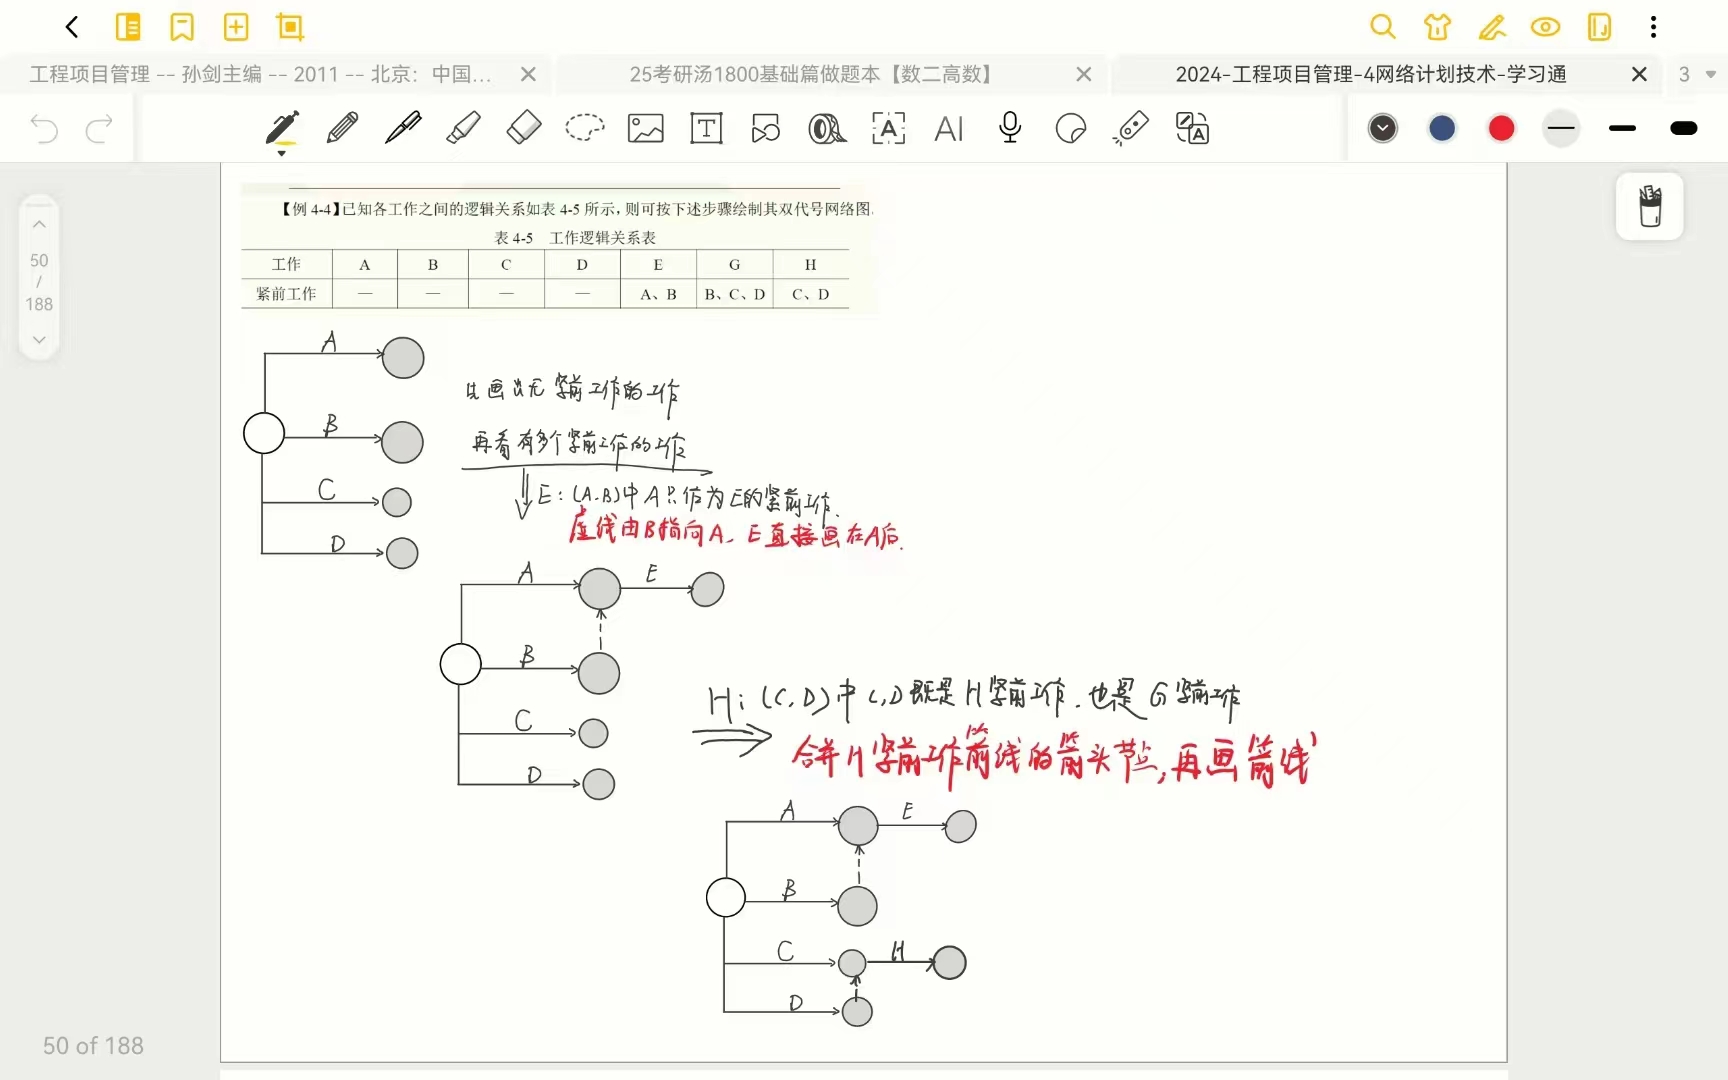 工程项目管理 -- 孙剑主编 -- 2011 -- 北京：中国...
25考研汤1800基础篇做题本【数二高数】
2024-工程项目管理-4网络计划技术-学习通
3
T
A
AI
A
50
/
188
【例 4-4】已知各工作之间的逻辑关系如表 4-5 所示，则可按下述步骤绘制其双代号网络图.
表 4-5 工作逻辑关系表
工作 A B C D E G H
紧前工作 — — — — A、B B、C、D C、D
A
B
C
D
画 无紧前工作的工作
再看有多个紧前工作的工作
E：(A.B)中A只作为E的紧前工作.
虚线由B指向A、E直接画在A后.
A E
B
C
D
H：(C,D)中C,D既是H紧前工作.也是G紧前工作
合并H紧前工作箭线的箭头节点,再画箭线
A E
B
C H
D
50 of 188